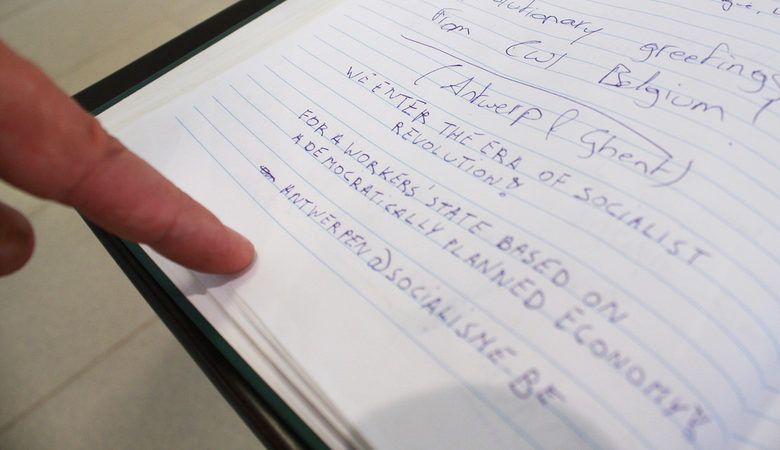 olutionary greetings
from (w) Belgium !
(Antwerp & Ghent)
WE ENTER THE ERA OF SOCIALIST
REVOLUTION!
FOR A WORKERS' STATE BASED ON
A DEMOCRATICALLY PLANNED ECONOMY!
ANTWERPEN@SOCIALISME.BE